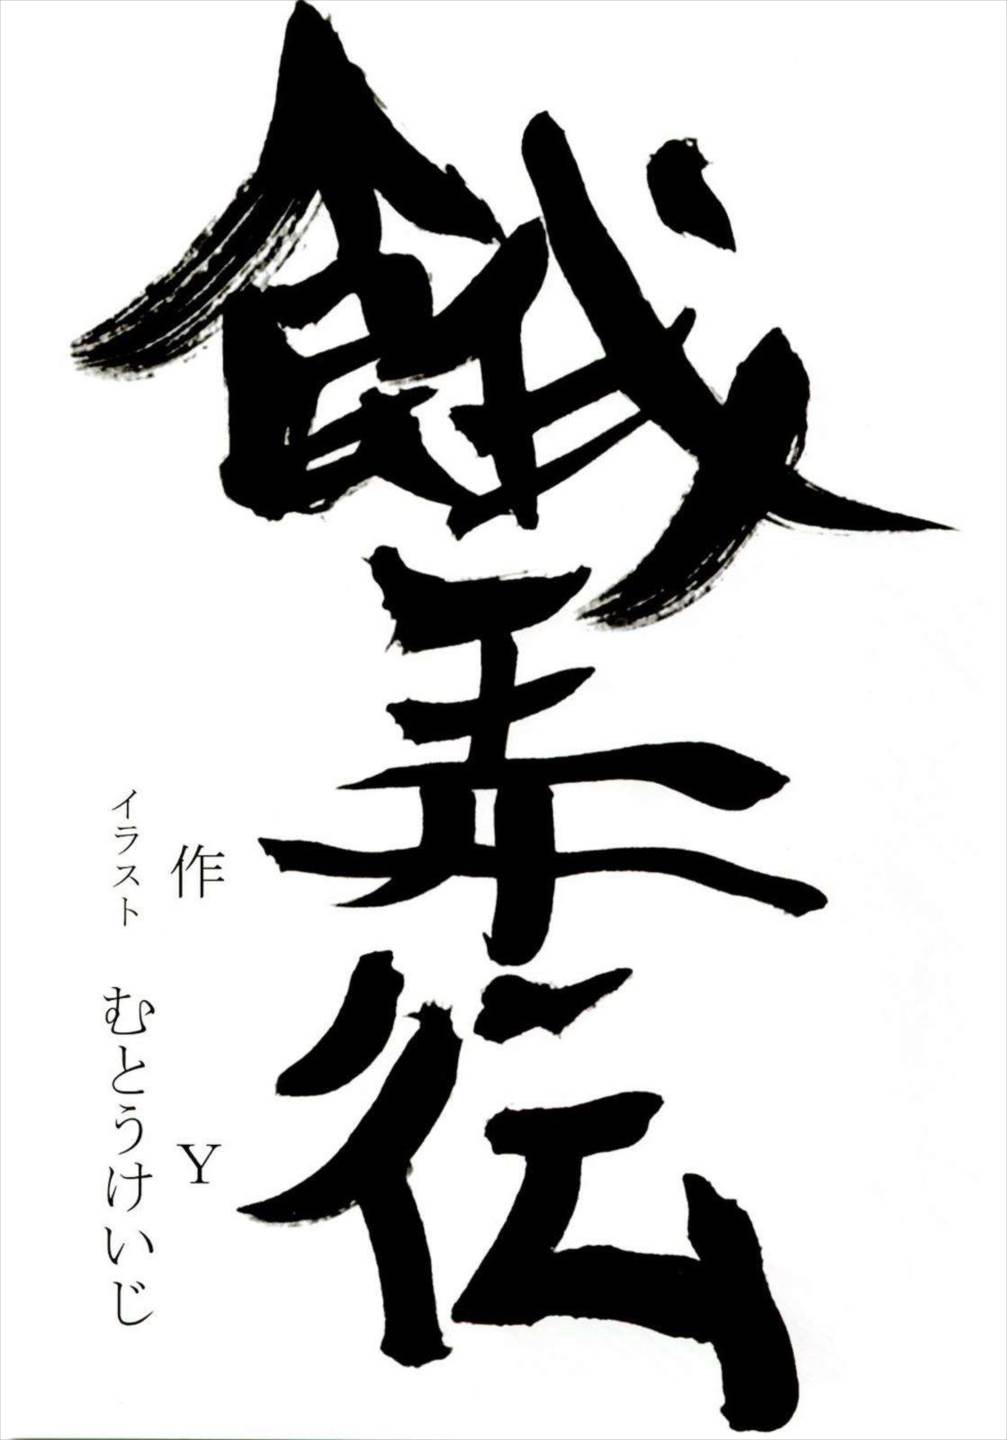 餓弄伝
作　Y
イラスト　むとうけいじ